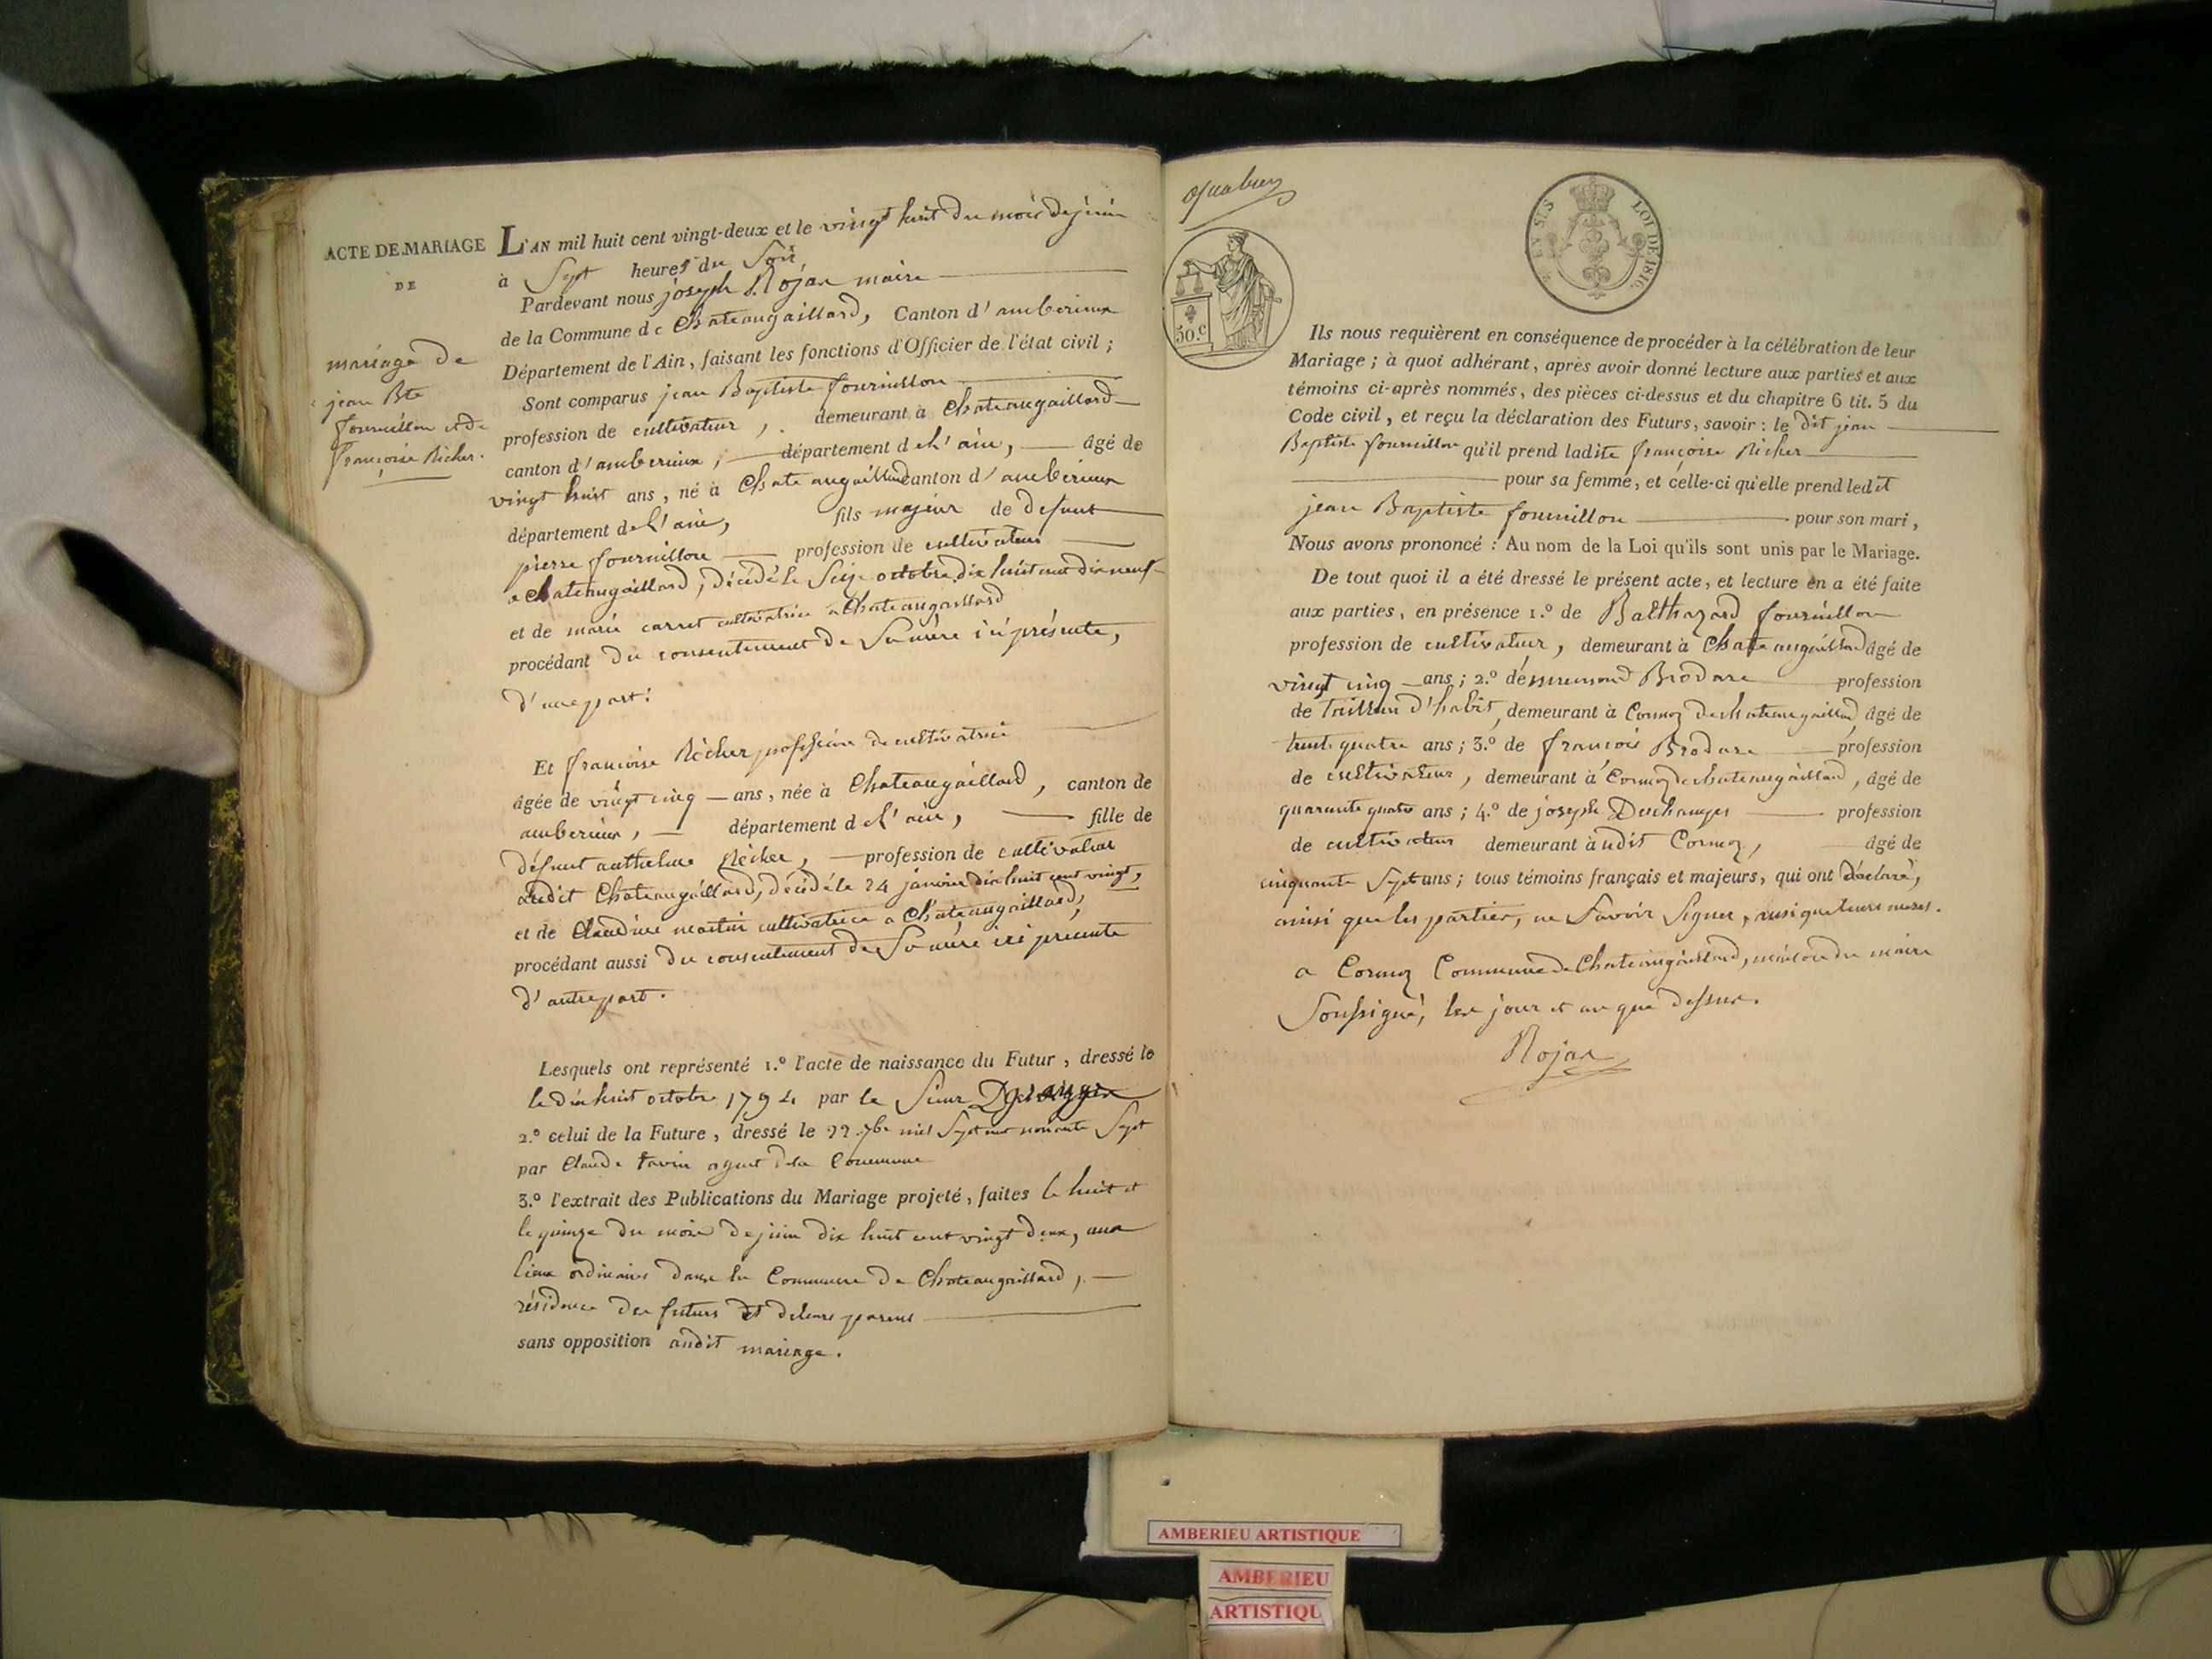 ACTE DE MARIAGE
DE
mariage de
jean Bte
fournillon et de
françoise Richer.
L'AN mil huit cent vingt-deux et le vingt huit du mois de juin
à Sept heures du Soir
Pardevant nous joseph Rojat maire
de la Commune de Chateaugaillard, Canton d'amberieux
Département de l'Ain, faisant les fonctions d'Officier de l'état civil ;
Sont comparus jean Baptiste fournillon
profession de cultivateur, demeurant à Chateaugaillard
canton d'amberieux, département de l'ain, âgé de
vingt huit ans, né à Chateaugaillard canton d'amberieux
département de l'ain, fils majeur de defunt
pierre fournillon profession de cultivateur
a chateaugaillard, décédé le Seize octobre dix huit cent dix neuf
et de marie carret cultivatrice a Chateaugaillard
procédant du consentement de Sa mère ici présente,
d'une part :
Et françoise Richer profession de cultivatrice
âgée de vingt cinq ans, née à Chateaugaillard, canton de
amberieux, département de l'ain, fille de
défunt anthelme Richer, profession de cultivateur
audit Chateaugaillard, décédé le 24 janvier dix huit cent vingt,
et de Claudine martin cultivatrice a Chateaugaillard,
procédant aussi du consentement de Sa mère ici presente
d'autre part.
Lesquels ont représenté 1.º l'acte de naissance du Futur, dressé le
le dix huit octobre 1794 par le Sieur
2.º celui de la Future, dressé le 22 7bre mil Sept cent nonante Sept
par Claude favin agent de la Commune
3.º l'extrait des Publications du Mariage projeté, faites le huit et
le quinze du mois de juin dix huit cent vingt deux, aux
lieux ordinaires dans la Commune de Chateaugaillard,
résidence des futurs et de leurs parens
sans opposition audit mariage.
50.C
EN SUS
LOI DE 1816.
Ils nous requièrent en conséquence de procéder à la célébration de leur
Mariage ; à quoi adhérant, après avoir donné lecture aux parties et aux
témoins ci-après nommés, des pièces ci-dessus et du chapitre 6 tit. 5 du
Code civil, et reçu la déclaration des Futurs, savoir : le dit jean
Baptiste fournillon qu'il prend ladite françoise Richer
pour sa femme, et celle-ci qu'elle prend ledit
jean Baptiste fournillon pour son mari,
Nous avons prononcé : Au nom de la Loi qu'ils sont unis par le Mariage.
De tout quoi il a été dressé le présent acte, et lecture en a été faite
aux parties, en présence 1.º de Balthazard fournillon
profession de cultivateur, demeurant à Chateaugaillard âgé de
vingt cinq ans ; 2.º de Brodare profession
de Tailleur d'habit, demeurant à Cormoz de chateaugaillard, âgé de
trente quatre ans ; 3.º de françois Brodare profession
de cultivateur, demeurant à Cormoz de chateaugaillard, âgé de
quarante quatre ans ; 4.º de joseph Deschamps profession
de cultivateur demeurant à udit Cormoz, âgé de
cinquante Sept ans ; tous témoins français et majeurs, qui ont déclaré,
ainsi que les parties, ne Savoir Signer, ainsi que leurs meres.
a Cormoz Commune de Chateaugaillard, maison du maire
Soussigné, les jour et an que dessus.
Rojat
AMBERIEU ARTISTIQUE
AMBERIEU
ARTISTIQU